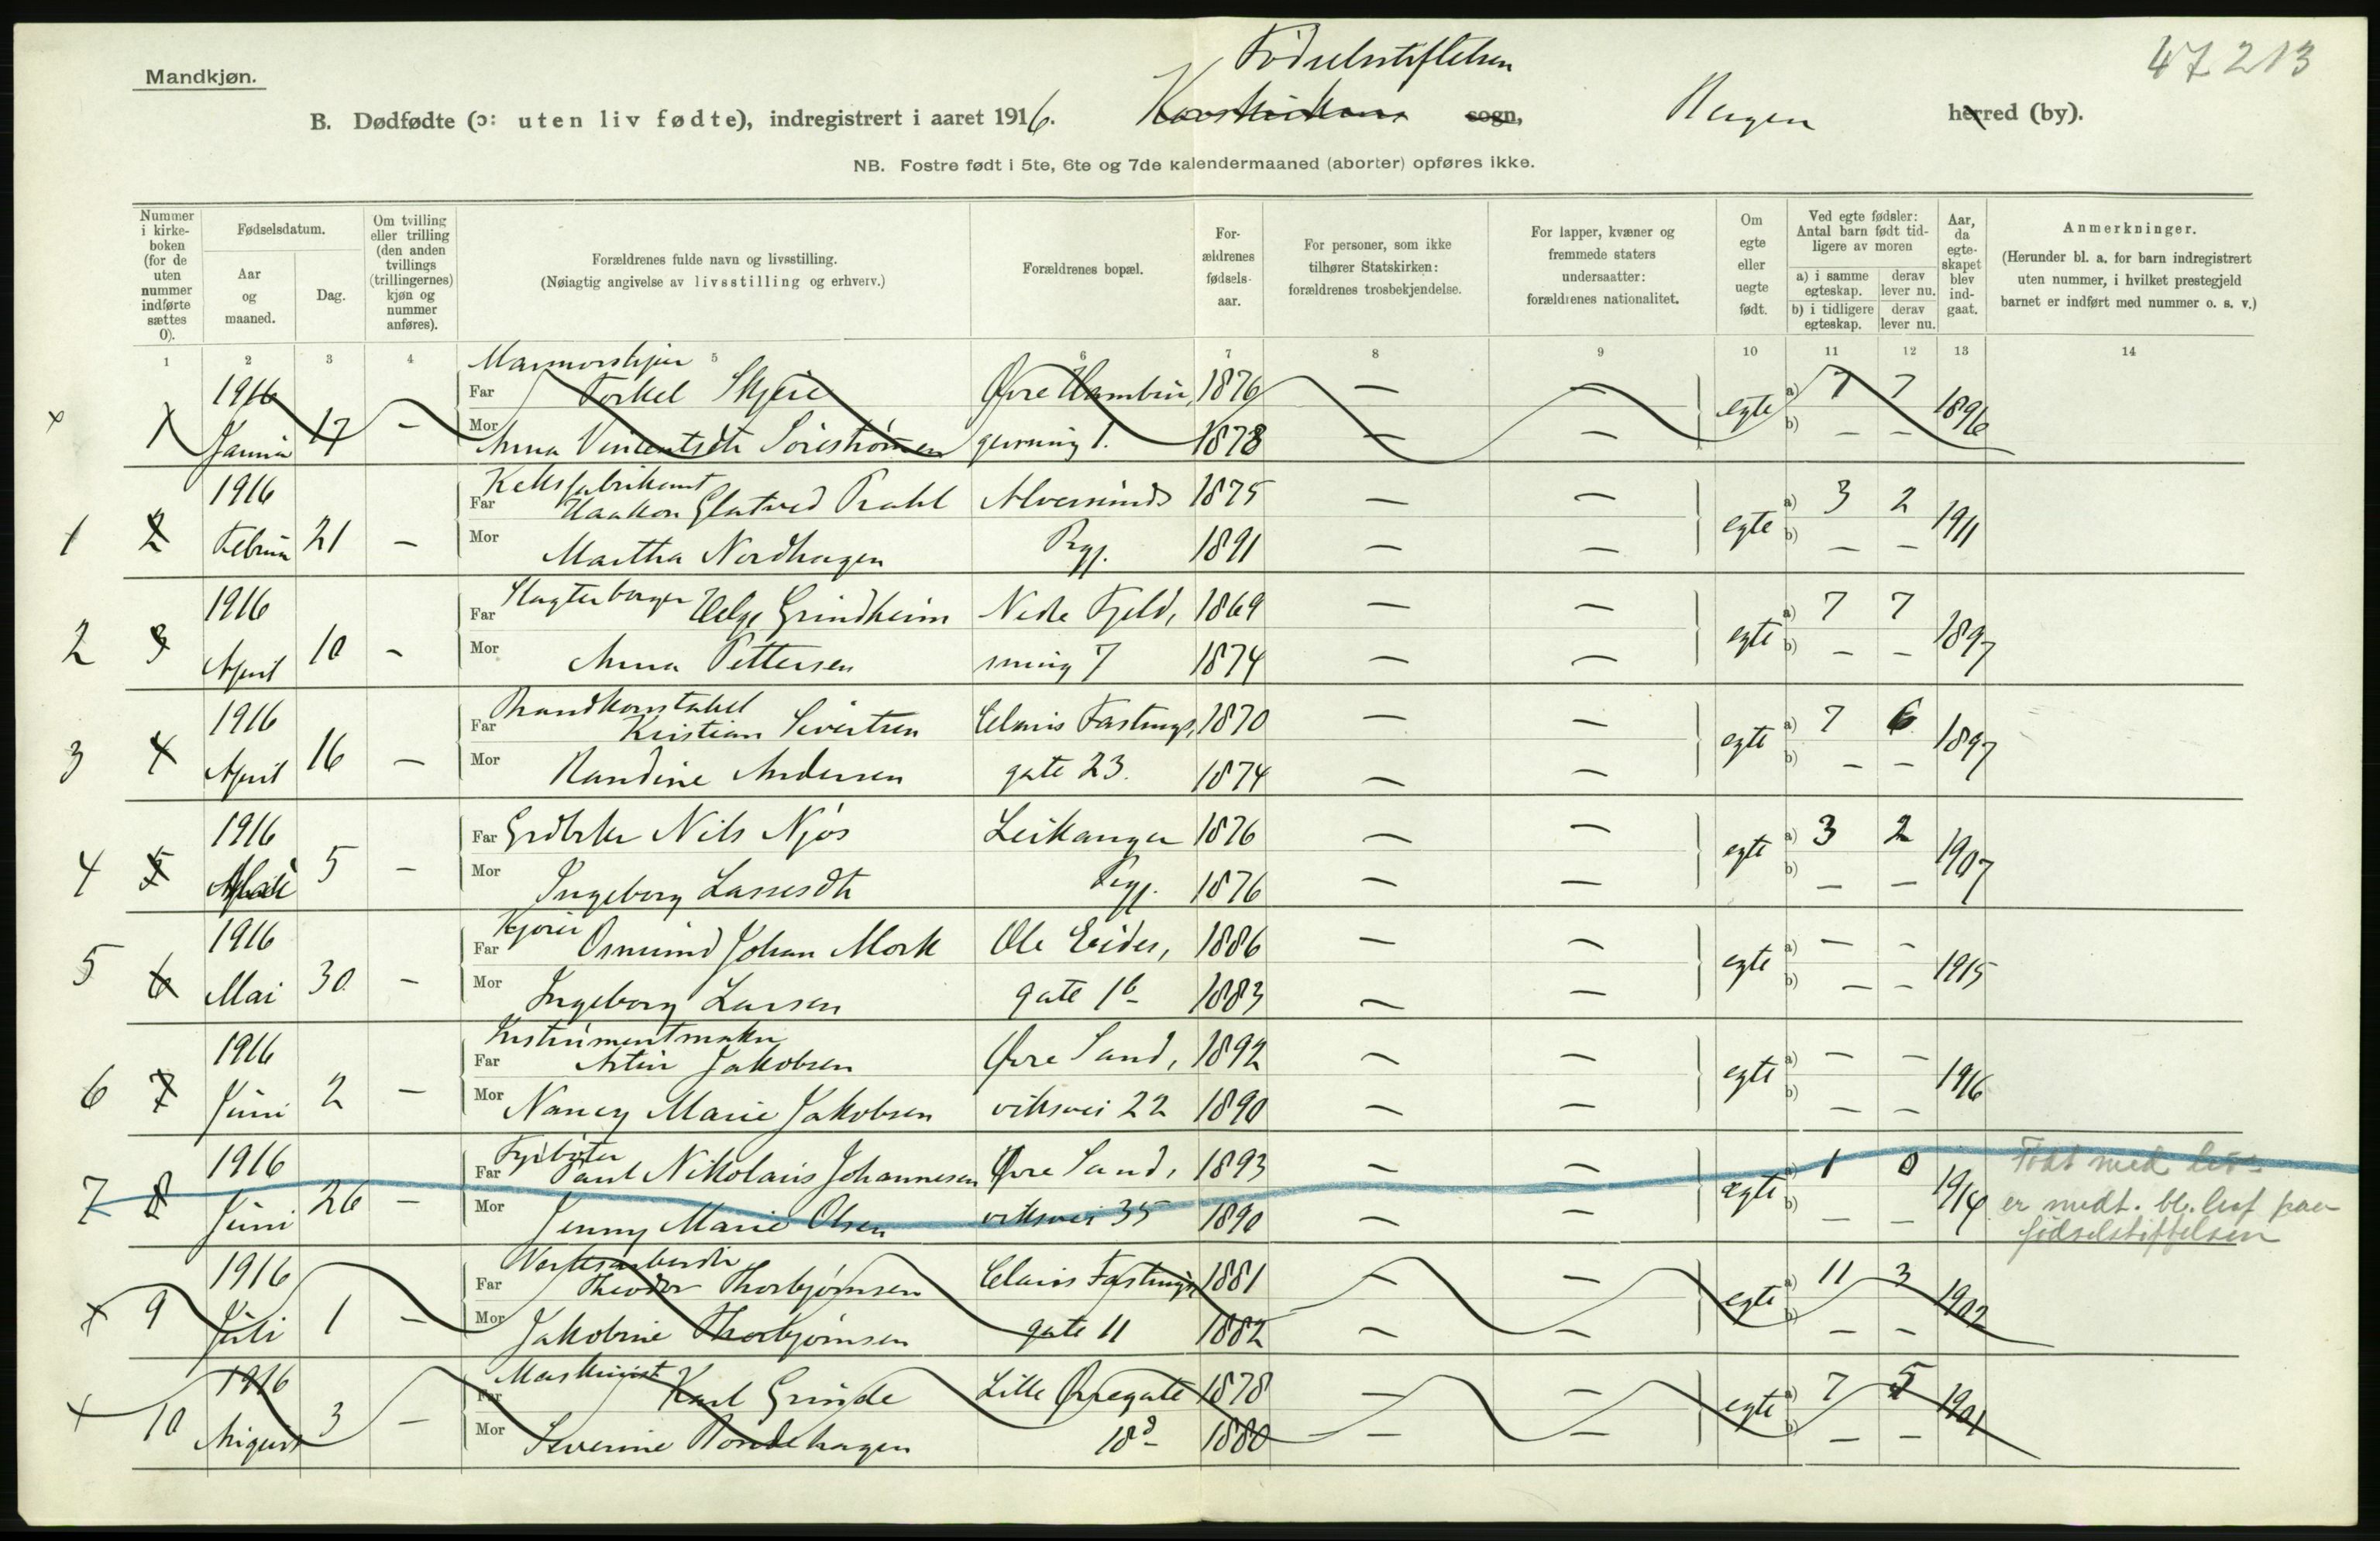 Mandkjøn.
Fødselsstiftelsen
47213
B. Dødfødte (ɔ: uten liv fødte), indregistrert i aaret 1916. Korskirkens sogn, herred (by).
NB. Fostre født i 5te, 6te og 7de kalendermaaned (aborter) opføres ikke.
Nummer i kirke-boken (for de uten nummer indførte sættes 0).
Fødselsdatum.
Aar og maaned.
Dag.
Om tvilling eller trilling (den anden tvillings (trillingernes) kjøn og nummer anføres).
Forældrenes fulde navn og livsstilling.
(Nøiagtig angivelse av livsstilling og erhverv.)
Forældrenes bopæl.
For-ældrenes fødsels-aar.
For personer, som ikke tilhører Statskirken: forældrenes trosbekjendelse.
For lapper, kvæner og fremmede staters undersaatter: forældrenes nationalitet.
Om egte eller uegte født.
Ved egte fødsler: Antal barn født tid-ligere av moren
a) i samme egteskap. derav lever nu.
b) i tidligere egteskap. derav lever nu.
Aar, da egte-skapet blev ind-gaat.
Anmerkninger.
(Herunder bl. a. for barn indregistrert uten nummer, i hvilket prestegjeld barnet er indført med nummer o. s. v.)
1 2 3 4 5 6 7 8 9 10 11 12 13 14
x 1 1916 17 – Far Torkel Skjeie Øvre 1876 – – egte a) 7 7 1896
Mor Anna 1. 1878 – – b) – –
1 2 1916 Februar 21 – Keksfabrikant
Far Haakon Prahl Alversunds 1875 – – egte a) 3 2 1911
Mor Martha Nordhagen Pgj. 1891 – – b) – –
2 3 1916 April 10 – Far Helge Grindheim Nedre Fjeld, 1869 – – egte a) 7 7 1897
Mor Anna Pettersen smug 7 1874 – – b) – –
3 4 1916 April 16 – Brandkonstabel
Far Kristian Sivertsen Claus Fastings, 1870 – – egte a) 7 6 1897
Mor Randine Andersen gate 23. 1874 – – b) – –
4 5 1916 Mai 5 – Far Grdbrker Nils Njøs Leikanger 1876 – – egte a) 3 2 1907
Mor Ingeborg Lassesdtr Pgj. 1876 – – b) – –
5 6 1916 Mai 30 – Kjører
Far Osmund Johan Mork Ole Eides, 1886 – – egte a) – – 1915
Mor Ingeborg Larsen gate 1b 1883 – – b) – –
6 7 1916 Juni 2 – Instrumentmaker
Far Jakobsen Øvre Sand, 1892 – – egte a) – – 1916
Mor Nancy Marie Jakobsen viksvei 22 1890 – – b) – –
7 8 1916 Juni 26 – Fyrbøter
Far Paul Nikolaus Johannesen Øvre Sand, 1893 – – egte a) 1 0 1914 Født med liv
Mor Jenny Marie Olsen viksvei 35 1890 – – b) – – er medt. bl. paa
fødselstiftelsen
x 9 1916 Juli 1 – Verkesarbeider
Far Theodor Thorbjørnsen Claus Fastings, 1881 – – egte a) 11 3 1902
Mor Jakobine Thorbjørnsen gate 11 1882 – – b) – –
x 10 1916 August 3 – Maskinist
Far Karl Grinde Lille Øvregate 1878 – – egte a) 7 5 1901
Mor Severine 18 1880 – – b) – –